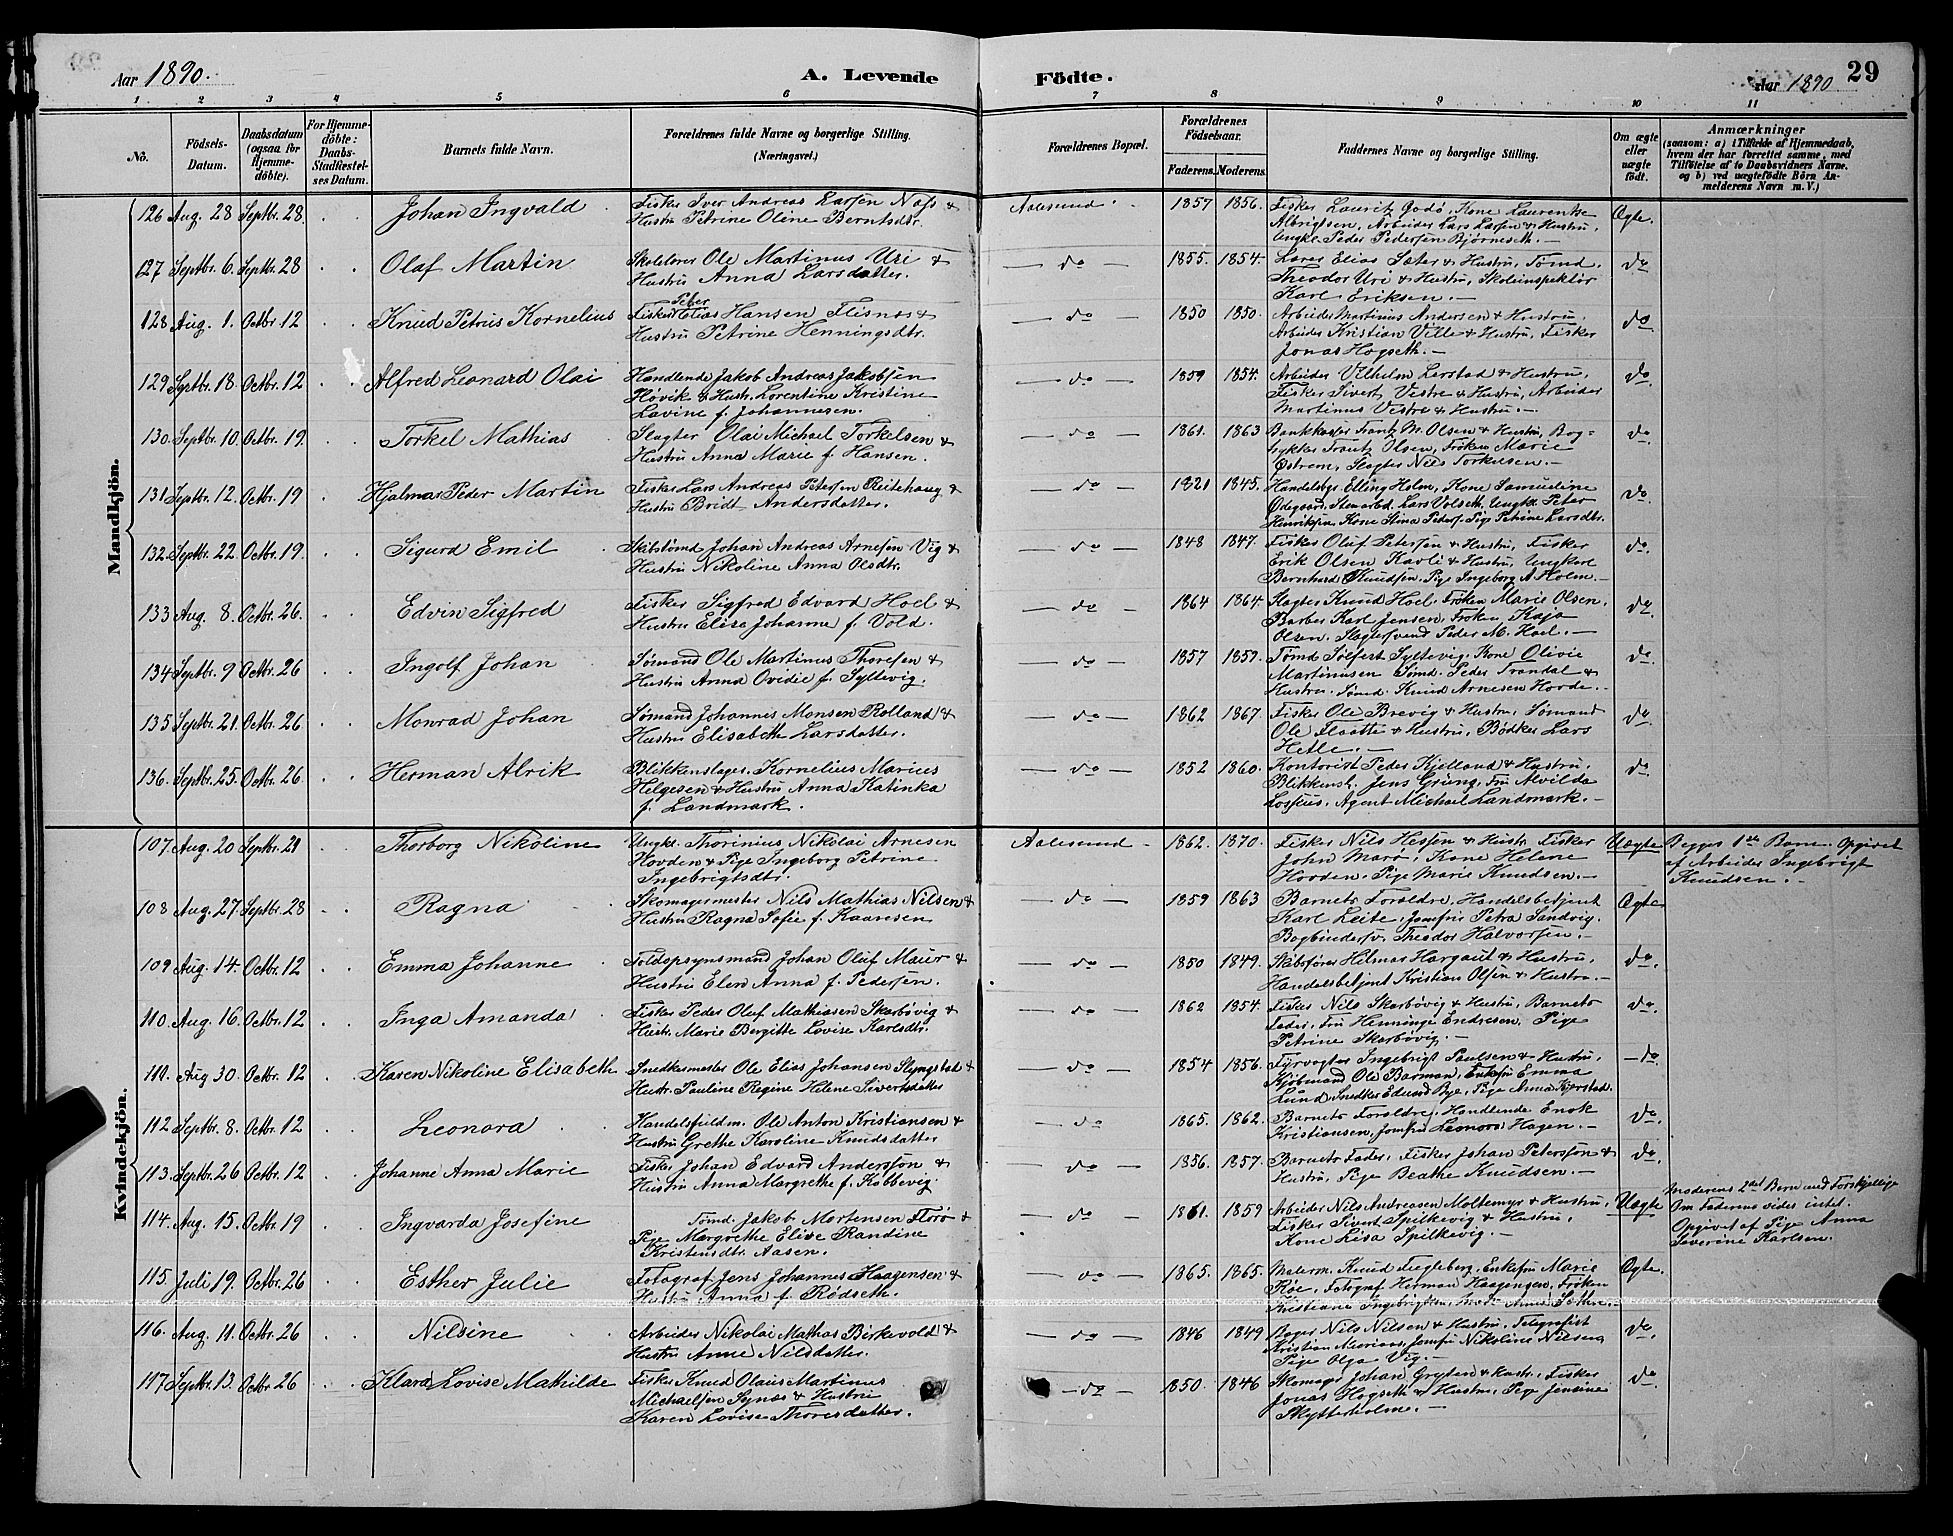 Aar 1890.
A. Levende Födte.
Aar 1890
29
1 2 3 4 5 6 7 8 9 10 11
No.
Födsels-Datum.
Daabsdatum (ogsaa for Hjemme-döbte).
For Hjemme-döbte: Daabs-Stadfæstel-ses Datum.
Barnets fulde Navn.
Forældrenes fulde Navne og borgerlige Stilling.
(Næringsvei.)
Forældrenes Bopæl.
Forældrenes Födselsaar.
Faderens. Moderens.
Faddernes Navne og borgerlige Stilling.
Om ægte eller uægte födt.
Anmærkninger
(saasom: a) i Tilfælde af Hjemmedaab,
hvem der har forrettet samme, med
Tilföielse af to Daabsvidners Navne.
og b) ved uægtefödte Börn An-
melderens Navn m. V.)
Mandkjön.
126 Aug. 28 Septbr. 28. Johan Ingvald Fisker Iver Andreas Larsen Nafs & Aalesund. 1857 1856. Fisker Lauritz Godø, Kone Laurentze Ægte.
Hustru Petrine Oline Berntsdtr. Albrigtsen, Arbeider Lars Larsen & Hustru,
Ungkr. Peder Pedersen Bjørneseth.—
127 Septbr. 6. Septbr. 28 Olaf Martin Skolelærer Ole Martinus Uri & — do — 1855. 1854. Lærer Elias Sæter & Hustru, Tømd. do
Hustru Anna Larsdatter. Theodor Uri & Hustru, Skoleinspektør
Karl Eriksen.—
128 Aug. 1. Octbr 12 Knud Petrus Kornelius Fisker Peter Elias Hansen Flisnes & — do — 1850 1850. Arbeider Martinus Andersen & Hustru, do
Hustru Petrine Henningsdtr. Arbeider Kristian Ville & Hustru, Fisker
Jonas Hogseth.—
129 Septbr. 18. Octbr. 12 Alfred Leonard Olai Handlende Jakob Andreas Jakobsen — do — 1859 1854. Arbeider Vilhelm Lerstad & Hustru, do
Hovik & Hustr. Lorentine Kristine Fisker Sivert Vestre & Hustru, Arbeider
Lavine f. Johannesen. Martinus Vestre & Hustru.—
130. Septbr. 10. Octbr. 19. Torkel Mathias Slagter Olai Michael Torkelsen & — do — 1861. 1863 Bankkasser Frantz M. Olsen & Hustru, Bog- do
Hustru Anna Marie f. Hansen. trykker Frantz Olsen, Frøken Marie
Østrem, Slagter Nils Torkelsen.—
131 Septbr. 12. Octbr. 19 Hjalmar Peder Martin Fisker Lars Andreas Petersen Reitehaug & — do — 1821 1845. Handelsbgr. Elling Holm, Kone Samueline do.
Hustru Bridt Andersdatter. Ødegaard, Stenarbd. Lars Volseth, Ungkr. Peter
Henriksen, Kone Stina Peders. Pige Petrine Larsdtr.
132. Septbr. 22 Octbr. 19. Sigurd Emil Skibstømd Johan Andreas Arnesen Vig & — do — 1848 1847. Fisker Oluf Petersen & Hustru, Fisker do.
Hustru Nikoline Anna Olsdtr. Erik Olsen Kavli & Hustru, Ungkarl
Bernhard Knudsen, Pige Ingeborg A. Holm.—
133 Aug. 8. Octbr. 26. Edvin Sigfred Fisker Sigfred Edvard Hoel & — do — 1864 1864. Slagter Knud Hoel, Frøken Marie Olsen, do.
Hustru Elise Johanne f. Vold. Barber Karl Jensen, Frøken Kaja
Olsen, Slagtersvend Peder M. Hoel.—
134 Septbr. 9 Octbr. 26 Ingolf Johan Sømand Ole Martinus Thoresen & — do — 1857 1859. Tømd Sølfest Syltevig, Kone Olivie do
Hustru Anna Ovidie f. Syltevig. Martinusen Sømd. Peder Trandal &
Hustru, Sømd. Knud Arnesen Horde.
135 Septbr. 21. Octbr. 26 Monrad Johan Sømand Johannes Monsen Rolland & — do — 1862 1867. Fisker Ole Brevig & Hustru, Sømand do.
Hustru Elisabeth Larsdatter. Ole Flaatte & Hustru, Bødker Lars
Hetle.—
136. Septbr. 25. Octbr. 26 Herman Alrik Blikkenslager Kornelius Marius — do — 1852 1860. Kontorist Peder Kjelland & Hustru, do
Helgesen & Hustru Anna Katinka Blikkensl. Jens Grüng, Fru Alvilda
f. Landmark. Lossius, Agent Michael Landmark.—
Kvindekjön.
107. Aug. 20 Septbr. 21 Thorborg Nikoline Ungkr. Thorinius Nikolai Arnesen Aalesund 1862. 1870. Fisker Nils Hessen & Hustr. Fisker Uægte Begges 1ste Barn. Opgivet
Hovden & Pige Ingeborg Petrine John Marø, Kone Helene af Arbeider Ingebrigt
Ingebrigtsdtr. Hovden, Pige Marie Knudsen.— Knudsen.—
108 Aug. 27. Septbr. 28 Ragna Skomagermester Nils Mathias Nilsen & — do — 1859 1863 Barnets Forældre, Handelsbetjent Ægte
Hustru Ragna Sofie f. Kaaresen Karl Leite, Jomfru Petra Sandvig,
Bogbindersv. Theodor Halvorsen.—
109 Aug. 14. Octbr. 12 Emma Johanne Toldopsynsmand Johan Oluf Maur & — do — 1850 1849. Skibsfører Hilmar Hargaut & Hustru, do.
Hustru Elen Anna f. Pedersen. Handelsbetjent Kristian Olsen & Hustru.—
110. Aug. 16. Octbr. 12 Inga Amanda Fisker Peder Oluf Mathiasen Skarbøvig & — do — 1862 1854. Fisker Nils Skarbøvig & Hustru, Barnets do.
Hustr. Marie Bergitte Lovise Karlsdtr. Fader, Fru Henninge Endresen, Pige
Petrine Skarbøvig.—
111. Aug 30. Octbr. 12 Karen Nikoline Elisabeth Snedkermester Ole Elias Johansen Slyngstad & — do — 1854 1856. Fyrvogter Ingebrigt Paulsen & Hustru, — do
Hustr. Pauline Regine Helene Sivertsdatter Kjøbmand Ole Barman, Enkefru Emma
Lund, Snedker Edvard Bye, Pige Anna Kjerstad.
112 Septbr. 8. Octbr. 12 Leonora Handelsfuldm. Ole Anton Kristiansen & — do — 1865. 1862. Barnets Forældre, Handlende Enok do.
Hustru Grethe Karoline Knudsdatter Kristiansen, Jomfru Leonora Hagen.—
113. Septbr. 26 Octbr. 12 Johanne Anna Marie Fisker Johan Edvard Andersson & — do — 1856. 1857. Barnets Fader, Fisker Johan Petersson & do.
Hustru Anna Margrethe f. Kobbevig. Hustru, Pige Beathe Knudsen.—
114. Aug. 15. Octbr. 19 Ingvarda Josefine Tømd. Jakob Mortensen Florø & — do — 1861. 1859 Arbeider Nils Andreasen Moltemyr & Hustru, Uægte Moderens 2det Barn med Forskjellige
Pige Margrethe Elise Randine Fisker Sivert Spilkevig & Hustru, Om Faderens vides intet.
Kristensdtr. Aasen. Kone Lisa Spilkevig.— Opgivet af Pige Anna
Severine Karlsen.
115. Juli 19. Octbr. 26 Esther Julie Fotograf Jens Johannes Haagensen & — do — 1865. 1865. Malerm. Knud Fugleberg, Enkefru Marie Ægte.
Hustru Anna f. Rødseth. Røe, Fotograf Herman Haagensen, Frøken
Kristiane Ingebrigtsen, Anna Sættre.—
116. Aug. 11. Octbr. 26 Nilsine Arbeider Nikolai Mathas Birkevold & — do — 1846 1849 Bager Nils Nilsen & Hustru, Telegrafist do.
Hustru Anne Nilsdatter. Kristian Jomfru Nikoline Nilsen,
Pige Olga Vig.—
117 Septbr. 13. Octbr. 26 Klara Lovise Mathilde Fisker Knud Olaus Martinus — do — 1850. 1846 Skomager Johan Gryten & Hustr. Fisker do.
Michaelsen Synæs & Hustru Jonas Hogseth & Hustru, Pige Jensine
Karen Lovise Thoresdatter. Skytterholm.—